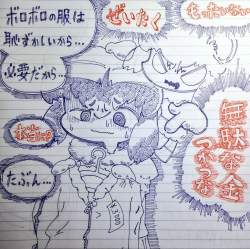 ボロボロの服は
恥ずかしいから…
必要だから…
たぶん…
ぜいたく
もったいない
無駄な金
つかうな